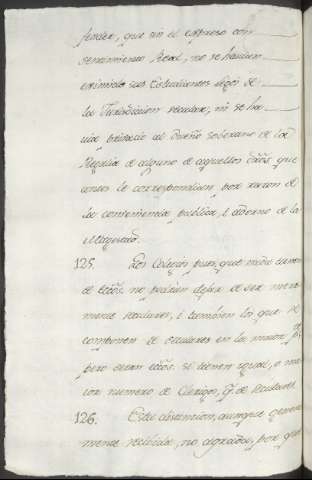 fender, que sin el expreso con
sentimiento Real, no se huvieran
eximido sus Estudiantes legos de
la Jurisdiccion secular, ni se ha
via privado al Dueño soberano de la
Regalia de alguno de aquellos dros que
antes le correspondian, por razon de
la conveniencia publica, i adorno de la
Magestad.
125. Los Colegios pues, que nada tienen
de Eccos. no podrian dejar de ser mera
mente seculares, i tambien los que se
componen de seculares en la maior pte
pero seran Eccos. si tienen igual, o ma
ior numero de Clerigos, q. de seculares.
126. Esta distincion, aunque general
mente recibida, no agrada, por que